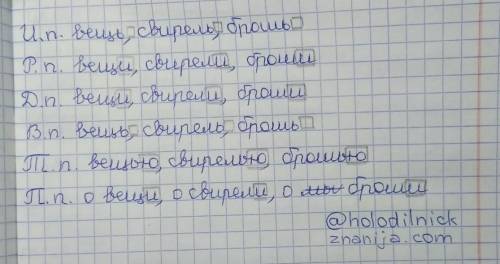 И.п. вещь, свирель, брошь
Р.п. вещи, свирели, броши
Д.п. вещи, свирели, броши
В.п. вещь, свирель, брошь
Т.п. вещью, свирелью, брошью
П.п. о вещи, о свирели, о броши
@holodilnick
znanija.com